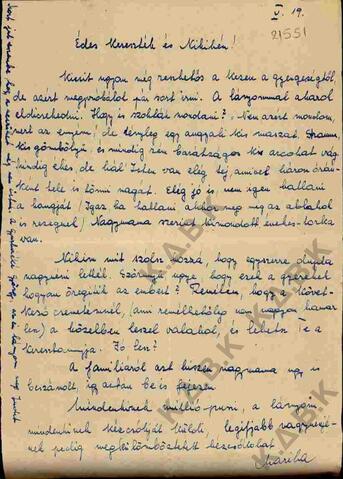 V. 19.
21551
Édes Keresték és Nikihém!
Kicsit ugyan még reszketős a kezem a gyengeségtől
de azért megpróbálok pár sort írni. A lányommal akarok
eldicsekedni. Hogy is szokták mondani? Nem azért mondom,
mert az enyém, de tényleg egy angyali kis maszat.
kis gömbölyű és mindig ilyen barátságos kis arcokat vág
Mindig éhes de hál' Isten van elég tej amivel három órán-
ként tele is tömi magát. Elég jó is, nem igen hallani
a hangját (Igaz ha hallani akkor meg az ablakok
is rezegnek) Nagymama szerint kimondott énekes-torka
van.
Nikihém mit szólsz hozzá, hogy egyszerre dupla
nagynéni lettél. Szörnyű ugye, hogy ezek a gyerekek
hogyan öregítik az embert? Remélem, hogy a követ-
kező csemeténél, (ami remélhetőleg nem nagyon hamar
lesz) a közelben leszel valahol, és lehetsz Te a
keresztanyja. Jó lesz?
A famíliáról azt hiszem nagymama úgy is
beszámolt, így aztán be is fejezem
Mindenkinek millió puszi, a lányom
mindenkinek kézcsókját küldi, legifjabb nagynéni-
nek pedig megkülönböztetett kézcsókokat
Marika
K.A.B.K
K.A.B.K
K.A.B.K
K.A.B.K